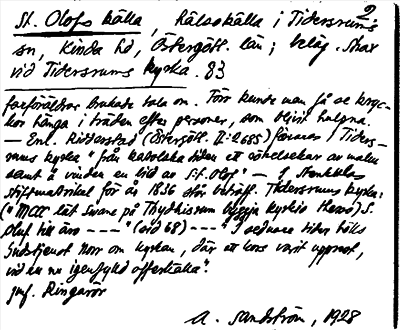 2
St. Olofs källa, Hälsokälla i Tidersrums
sn, Kinda hd, Östergötl. län; beläg. strax
vid Tidersrums kyrka. 83
farföräldrar brukade tala om. Förr kunde man få se kryc-
kor hänga i träden efter personer, som blivit helgna.
— Enl. Ridderstad (Östergötl. II: 2685) fanns i Tiders-
rums kyrka "från katolska tiden ett rökelsekar av malm
samt å vinden en bild av St. Olof" — I Stenholms
stiftsmatrikel för år 1836 står beträff. Thidersrums kyrka:
("MCCC lät Svane på Thydhisrum byggia kyrkio Herra) S.
Oluf till äro - - - " (sid 68) - - - "I sednare tider hölls
Gudstjenst norr om kyrkan, där ett kors varit upprest,
vid en nu igenfylld offerkälla".
Jmf. Ringarör
A. Sandström, 1928